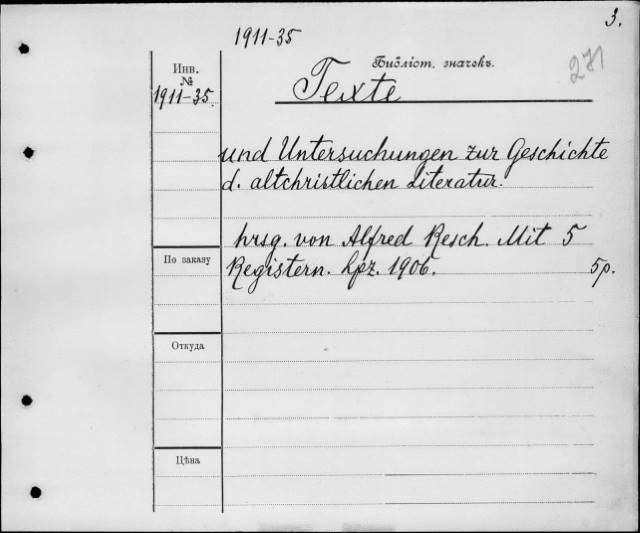 3.
1911-35
Инв.
№
1911-35.
Библіот. значекъ.
271
Texte
und Untersuchungen zur Geschichte
d. altchristlichen Literatur.
hrsg. von Alfred Resch. Mit 5
Registern. Lpz. 1906.
5р.
По заказу
Откуда
Цѣна